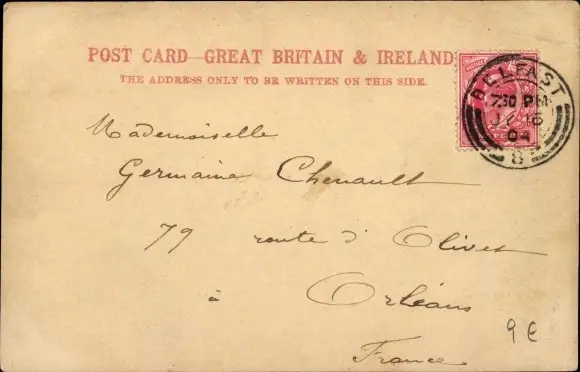 POST CARD—GREAT BRITAIN & IRELAND
THE ADDRESS ONLY TO BE WRITTEN ON THIS SIDE.
BELFAST
7.30 PM
16
04
8
Mademoiselle
Germaine Chenault
79 route d'Olivet
à Orléans
France
9 €